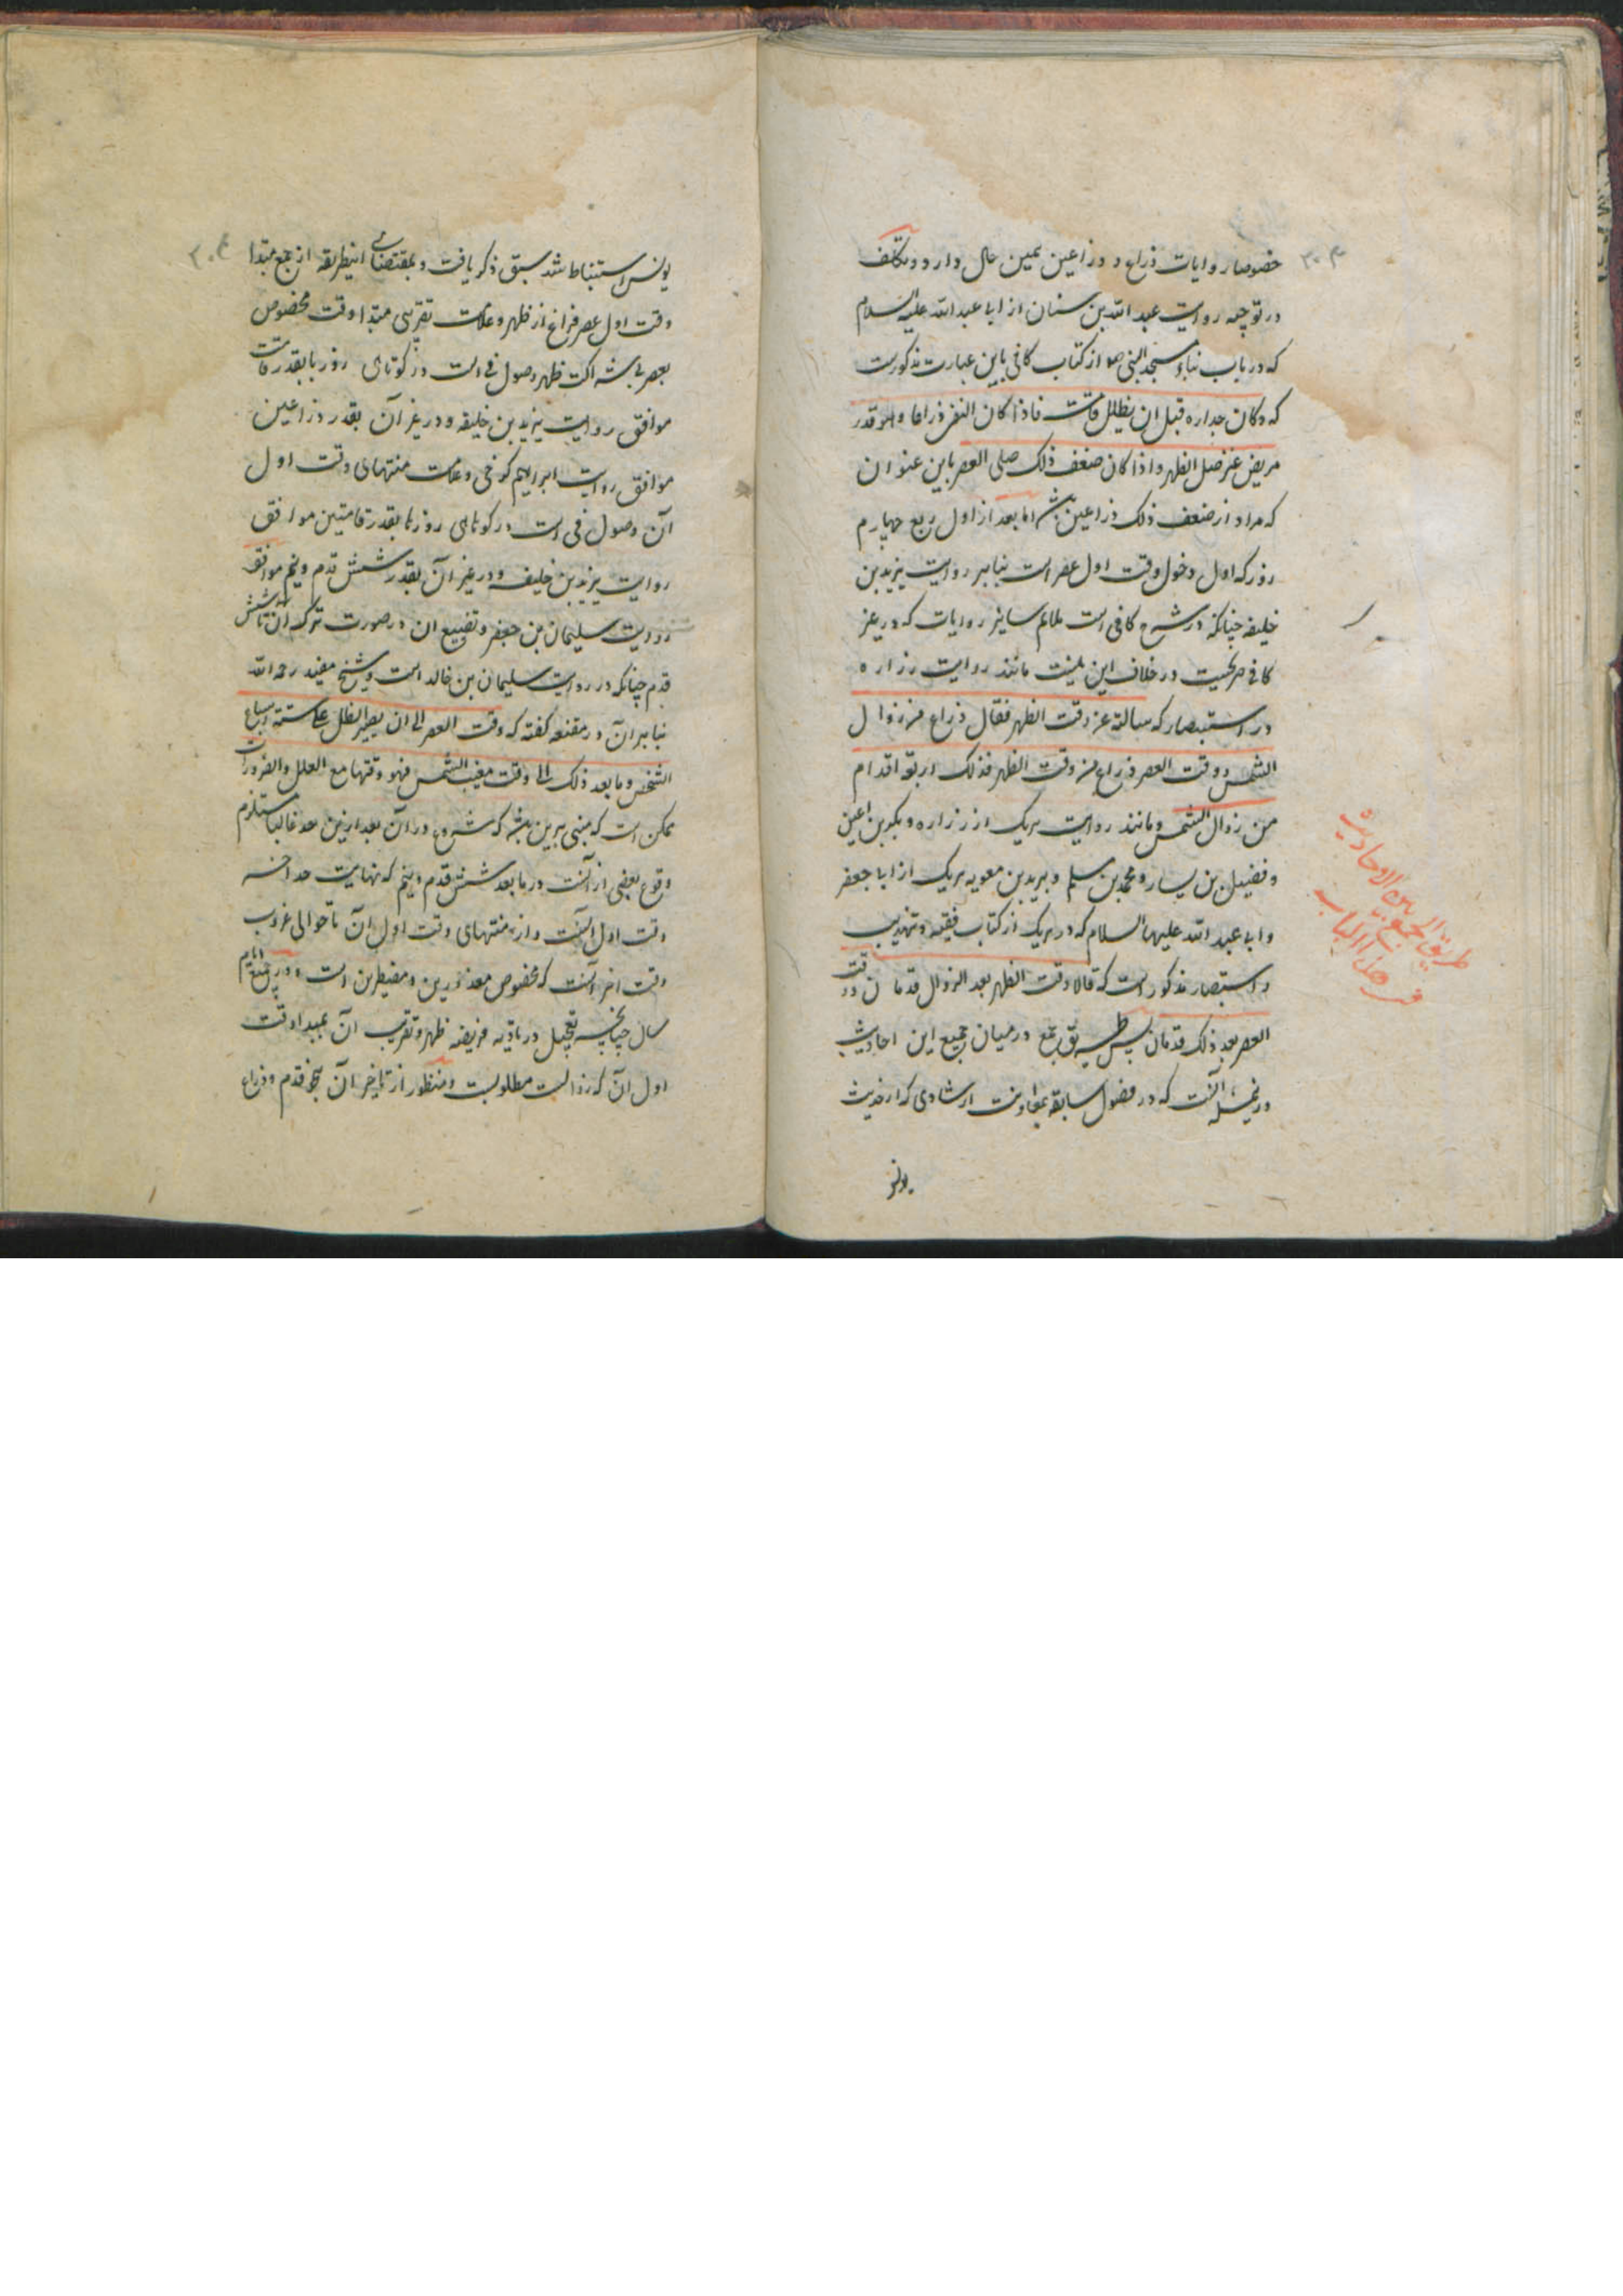 خصوصا روایات ذراع و ذراعین همین حال دارد و تکلف
در توجیه روایت عبد الله بن سنان از ابا عبد الله علیه السلام
که در باب بناء مسجد النبی ص از کتاب کافی باین عبارت مذکورست
که و کان جداره قبل ان یظلل قامت فاذا کان الفئ ذراعا و هو قدر
مربض عنز صلی الظهر و اذا کان ضعف ذلک صلی العصر باین عنوان
که مراد از ضعف ذلک ذراعین باشد اما بعد از اول ربع چهارم
روز که اول دخول وقت اول عصر است بنابر روایت یزید بن
خلیفه چنانکه در شرح کافی است ملایم سایر روایات که در غیر
کافی صریحست در خلاف این نیست مانند روایت زراره
در استبصار که سالته عن وقت الظهر فقال ذراع من زوال
الشمس و وقت العصر ذراع من وقت الظهر فذلک اربعة اقدام
من زوال الشمس و مانند روایت هریک از زراره و بکیر بن اعین
و فضیل بن یسار و محمد بن مسلم و برید بن معویه هریک از ابا جعفر
و ابا عبد الله علیهما السلام که در هریک از کتاب فقیه و تهذیب
و استبصار مذکور است که قالا وقت الظهر بعد الزوال قدمان و وقت
العصر بعد ذلک قدمان پس طریق جمع در میان جمیع این احادیث
درین مسئله آنست که در فصول سابقه بمعاونت ارشادی که از حدیث
یونس
طریق الجمع بین الاحادیث
فی هذا الباب
۳۰۳
یونس استنباط شد سبق ذکر یافت و بمقتضای اینطریقه از جمع مبتدا
وقت اول عصر فراغ از ظهر و علامت تقریبی مبتدا وقت مخصوص
بعصر بی شراکت ظهر وصول فئ است در کوتاهی روزها بقدر قامت
موافق روایت یزید بن خلیفه و در غیر آن بقدر ذراعین
موافق روایت ابراهیم کرخی و علامت منتهای وقت اول
آن وصول فئ است در کوتاهی روزها بقدر قامتین موافق
روایت یزید بن خلیفه و در غیر آن بقدر شش قدم و نیم موافق
روایت سلیمان بن جعفر و تضییع ان در صورت ترک آن تا شش
قدم چنانکه در روایت سلیمان بن خالد است و شیخ مفید رحمه الله
بنابر آن در مقنعه گفته که وقت العصر الی ان یصیر الظل علی ستة اسباع
الشخص و ما بعد ذلک الی وقت مغیب الشمس فهو وقتها مع العلل و الضرورات
ممکن است که مبنی برین باشد که شروع در آن بعد ازین حد غالبا مستلزم
وقوع بعضی از آنست در ما بعد شش قدم و نیم که نهایت حد آخر
وقت اول آنست و از منتهای وقت اول آن تا حوالی غروب
وقت آخر آنست که مخصوص معذورین و مضطرین است و در جمیع ایام
سال چنانچه تعجیل در تادیه فریضه ظهر و تقریب آن بمبدا وقت
اول آن که زوالست مطلوبست و منظور از تاخیر آن بنحو قدم و ذراع